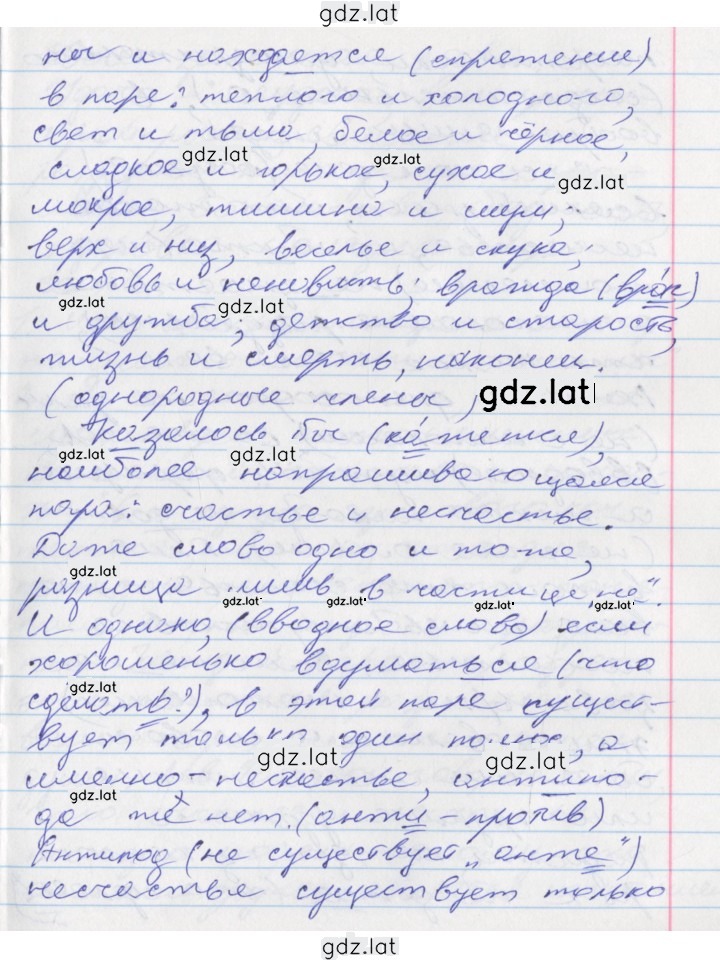 gdz.lat
ны и находятся (спряжение)
в паре: теплого и холодного,
свет и тьма, белое и чёрное,
gdz.lat gdz.lat
сладкое и горькое, сухое и
gdz.lat
мокрое, тишина и шум,
верх и низ, веселье и скука,
любовь и ненависть; вражда (враг)
gdz.lat gdz.lat
и дружба; детство и старость,
жизнь и смерть, наконец.
(однородные члены) gdz.lat
Казалось бы (кажется),
gdz.lat
наиболее напрашивающаяся
gdz.lat
пара: счастье и несчастье.
Даже слово одно и то же,
gdz.lat
разница лишь в частице „не“.
gdz.lat gdz.lat gdz.lat gdz.lat
И однако, (вводное слово) если
хорошенько вдуматься (что
gdz.lat
сделать?), в этой паре сущест-
вует только один полюс, а
gdz.lat gdz.lat
именно – несчастье, антипо-
gdz.lat
да же нет. (анти – против)
Антипод (не существует „анте“)
несчастья существует только
gdz.lat